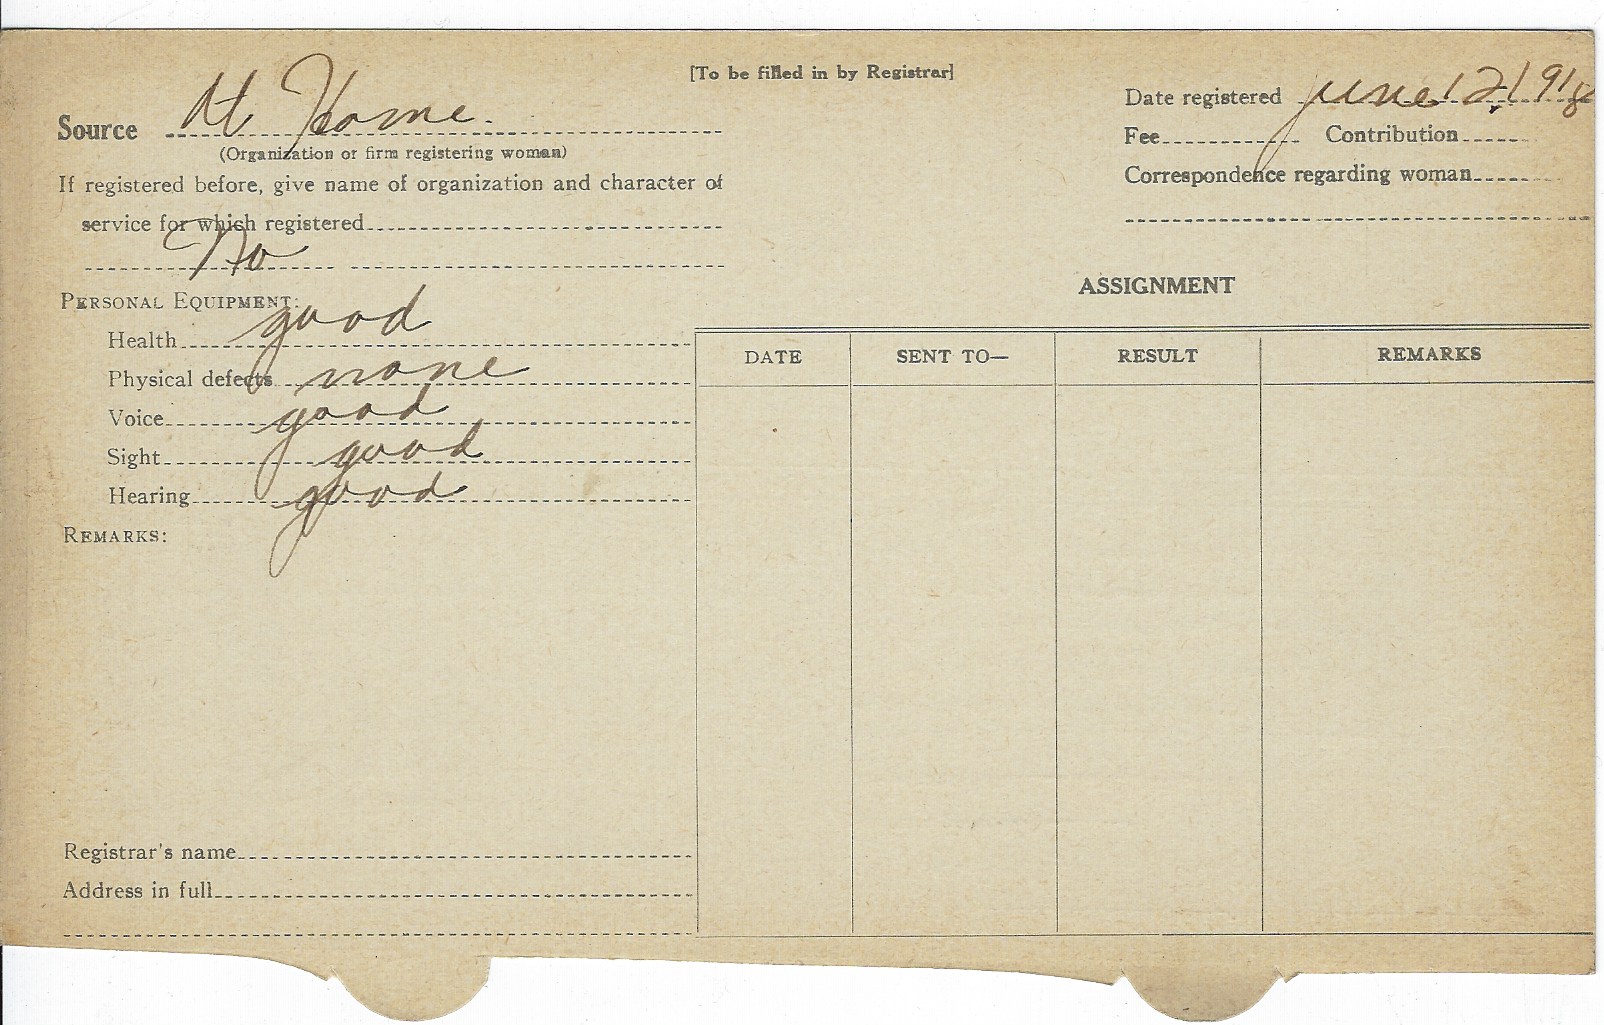 [To be filled in by Registrar]
Source At Home.
(Organization or firm registering woman)
If registered before, give name of organization and character of
service for which registered
No
PERSONAL EQUIPMENT:
Health good
Physical defects none
Voice good
Sight good
Hearing good
REMARKS:
Registrar's name
Address in full
Date registered June 12, 1918
Fee Contribution
Correspondence regarding woman
ASSIGNMENT
DATE SENT TO— RESULT REMARKS